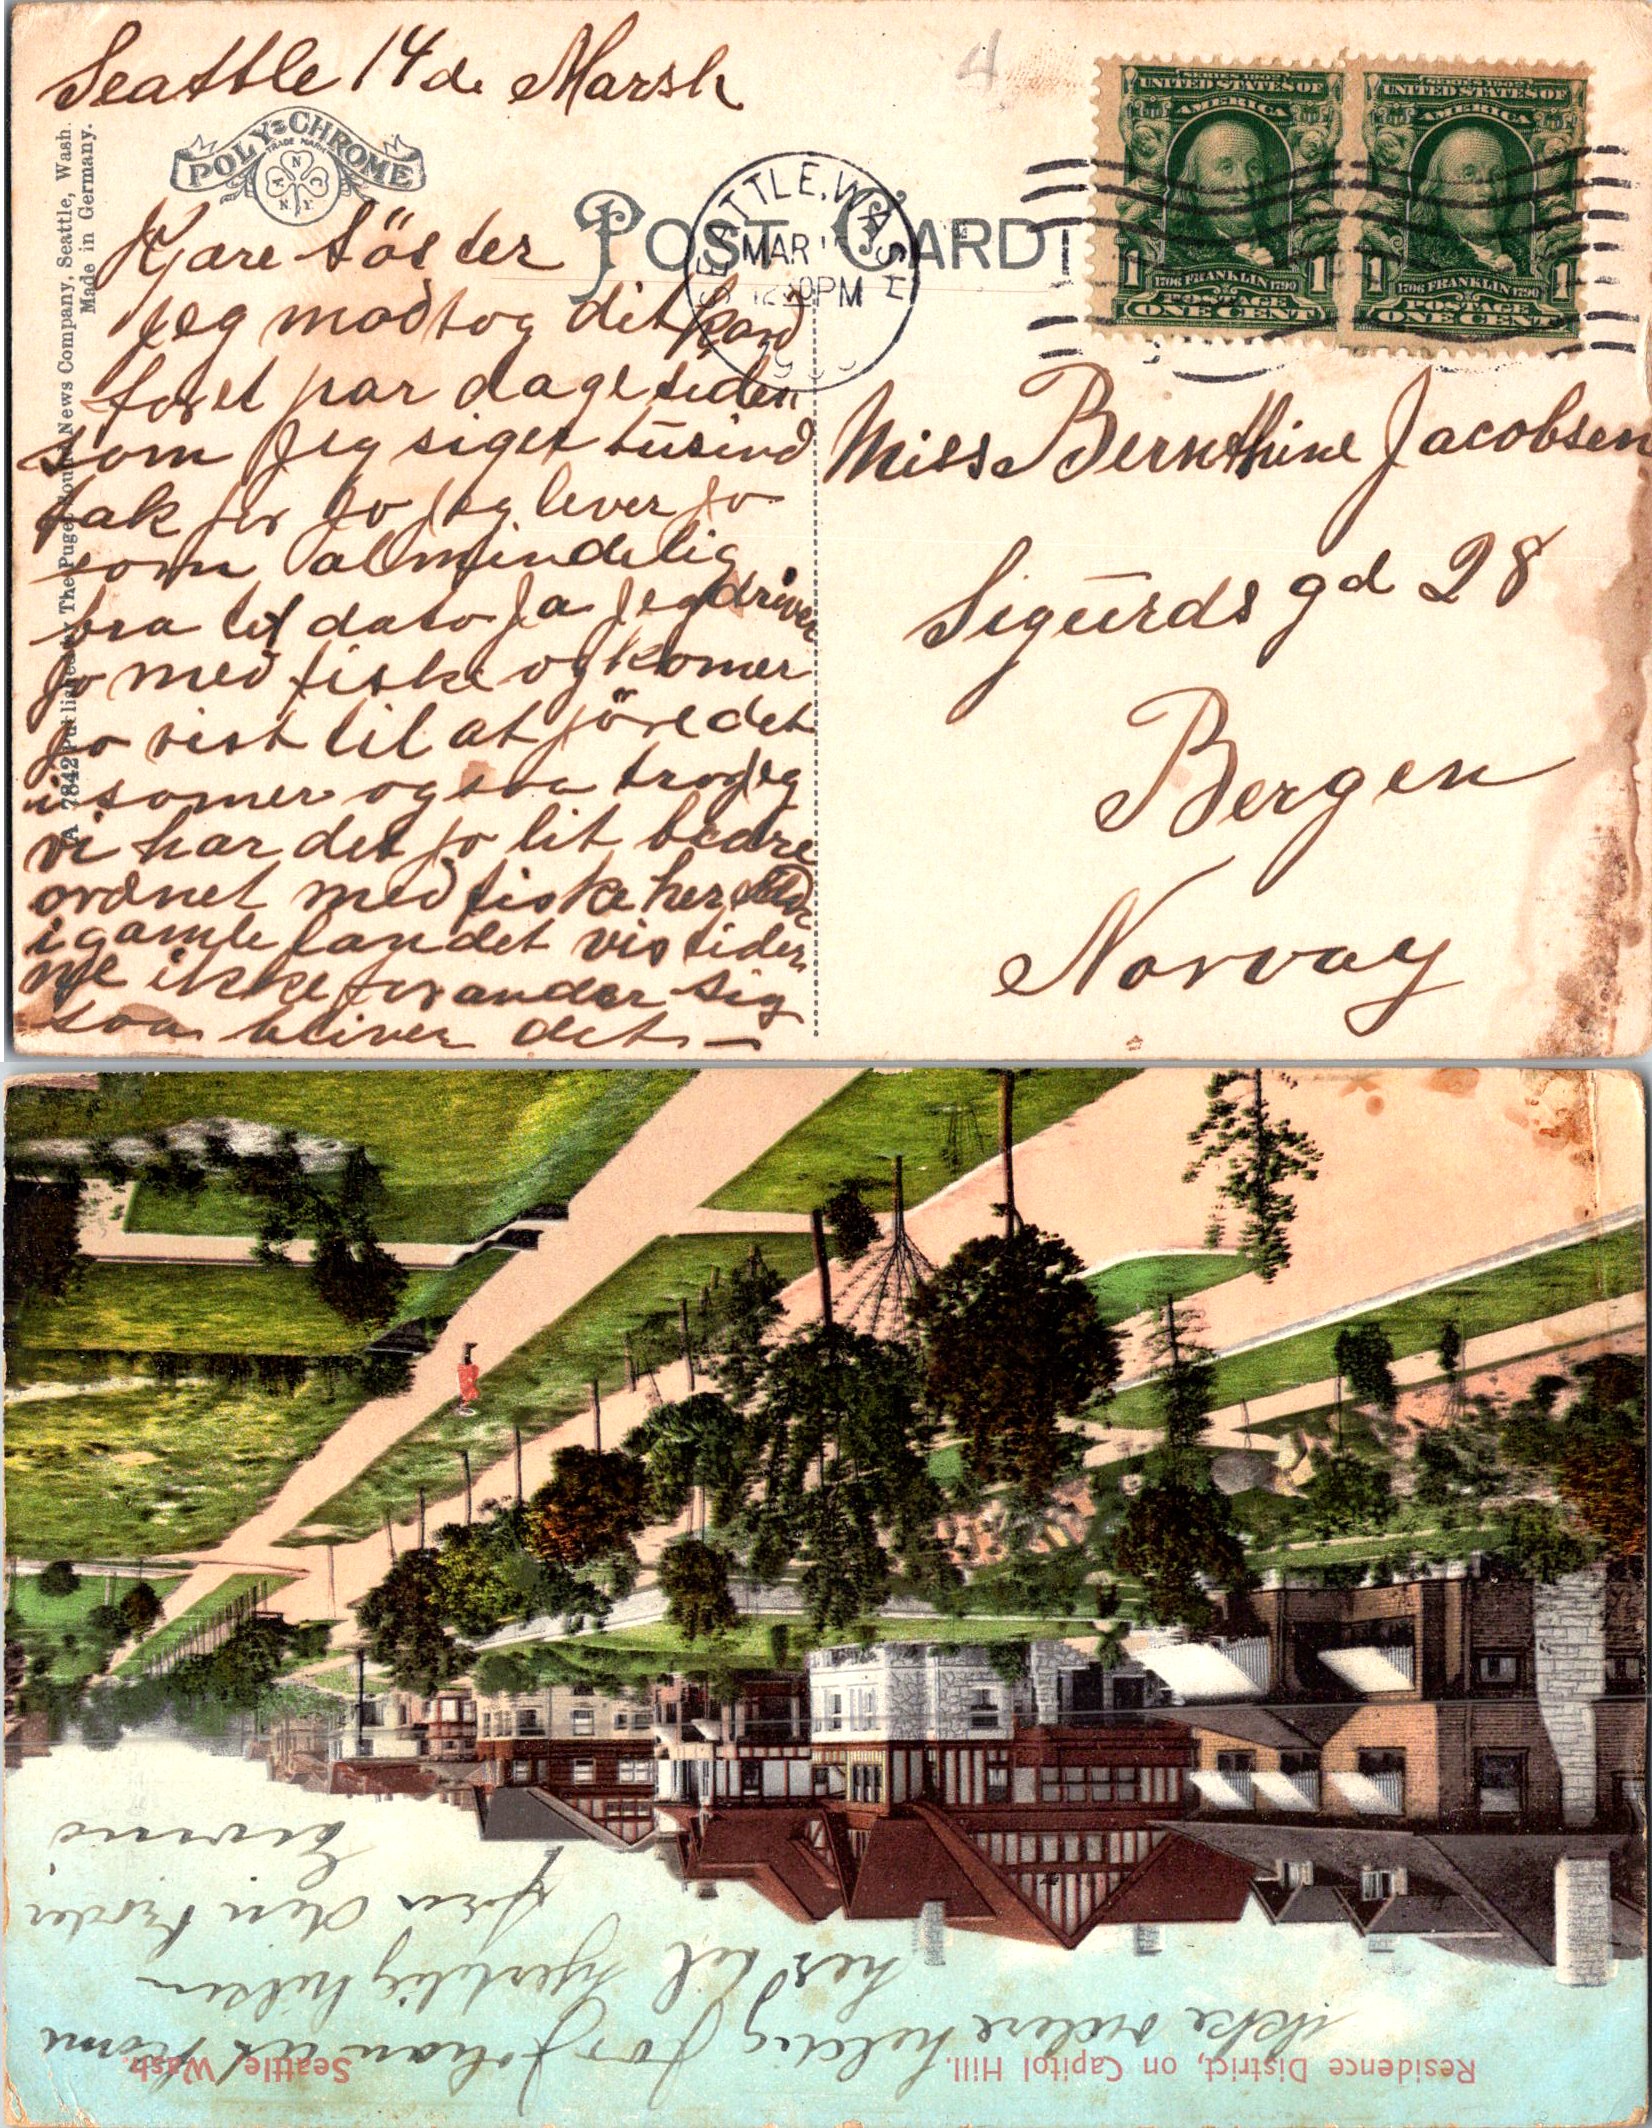 Seattle 14de Marsh
POLY-CHROME
TRADE MARK
N.Y.
POST CARD
SEATTLE, WASH.
MAR
12 30 PM
SERIES 1902
UNITED STATES OF
AMERICA
1706 FRANKLIN 1790
POSTAGE
1 ONE CENT 1
SERIES 1902
UNITED STATES OF
AMERICA
1706 FRANKLIN 1790
POSTAGE
1 ONE CENT 1
A 7842 Published by The Puget Sound News Company, Seattle, Wash.
Made in Germany.
Kjare Söster
Jeg modtog dit kard
for et par dage siden
som Jeg siger tusind
tak for Jo Jeg lever jo
som almindelig
bra til dato Ja Jeg driver
jo med fiske og komer
jo vist til at jöre det
i somer ogsaa tror Jeg
vi har det jo lit bedre
ordnet med fiske her
i gamle landet vis tider
ne ikke forander sig
saa bliver det —
Miss Bernthine Jacobsen
Sigurds gd 28
Bergen
Norvay
Residence District, on Capitol Hill.
Seattle, Wash.
ikke videre heldig for Johan at kome
her til hjertelig hilsen
fra din Broder